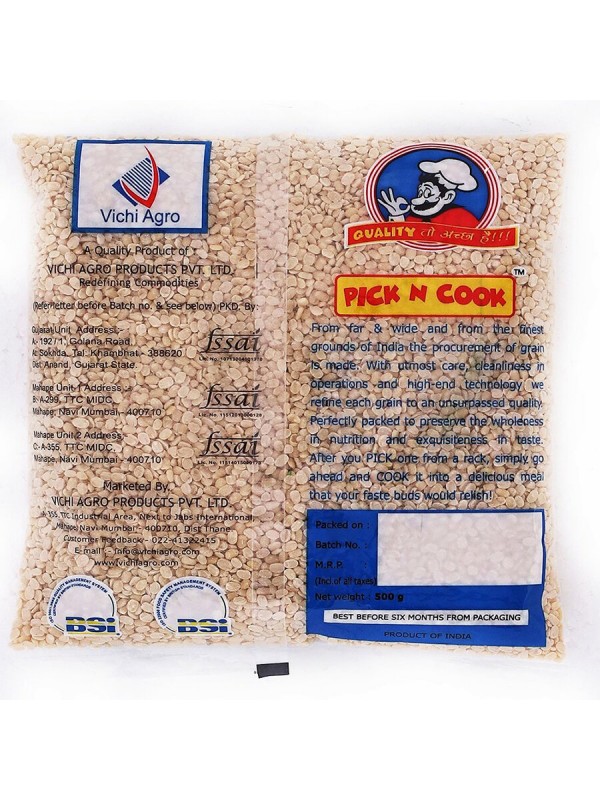 Vichi Agro
A Quality Product of
VICHI AGRO PRODUCTS PVT. LTD.
Redefining Commodities
(Refer letter before Batch no. & see below) PKD. By:
Gujarat Unit Address :-
A- 192/1, Golana Road,
At Sokhda, Tel. Khambhat - 388620
Dist. Anand, Gujarat State.
fssai
Mahape Unit 1 Address :-
B- A-299, TTC MIDC,
Mahape, Navi Mumbai - 400710
fssai
Mahape Unit 2 Address
C:- A-355, TTC MIDC,
Mahape, Navi Mumbai - 400710
fssai
Marketed By
VICHI AGRO PRODUCTS PVT. LTD.
A-355, TTC Industrial Area, Next to Jabs International,
Mahape, Navi Mumbai - 400710, Dist Thane
Customer Feedback/- 022-41322415
E-mail - info@vichiagro.com
www.vichiagro.com
BSi
BSi
QUALITY तो अच्छा है!!!
PICK N COOK ™
From far & wide and from the finest
grounds of India the procurement of grain
is made. With utmost care, cleanliness in
operations and high-end technology we
refine each grain to an unsurpassed quality.
Perfectly packed to preserve the wholeness
in nutrition and exquisiteness in taste.
After you PICK one from a rack, simply go
ahead and COOK it into a delicious meal
that your taste buds would relish!
Packed on :
Batch No. :
M.R.P. :
(Incl of all taxes)
Net weight : 500 g
BEST BEFORE SIX MONTHS FROM PACKAGING
PRODUCT OF INDIA